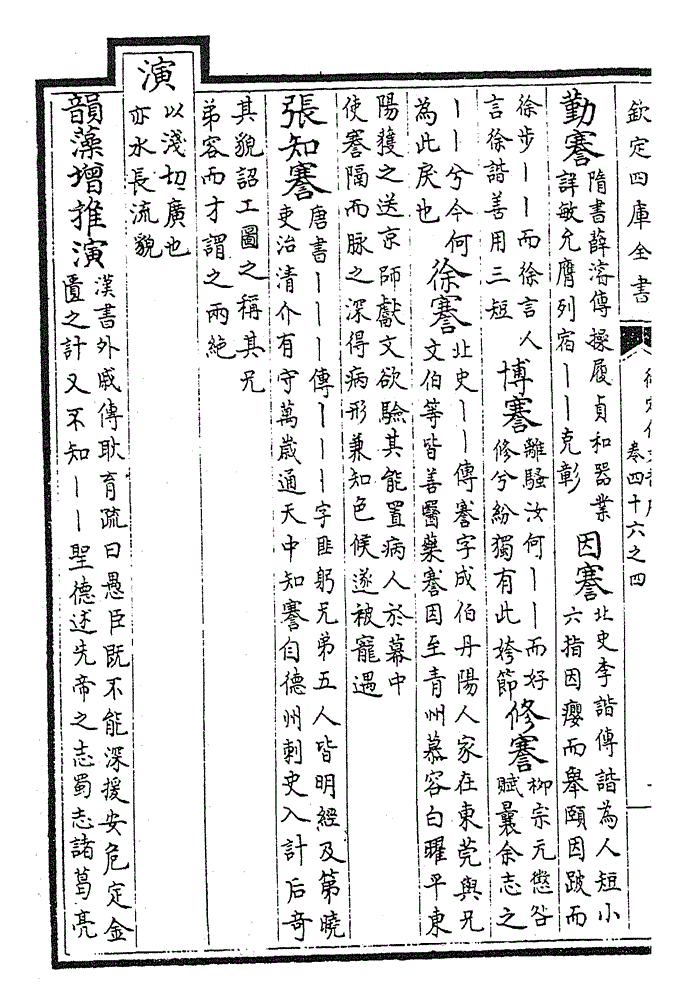 欽定四庫全書
卷四十六之四
勤謇
隋書薛濬傳操履貞和器業
詳敏允膺列宿丨丨克彰
因謇
北史李諧傳諧為人短小
六指因癭而舉頤因跛而
徐步丨丨而徐言人
言徐諧善用三短
博謇
離騷汝何丨丨而好
修兮紛獨有此姱節
修謇
柳宗元懲咎
賦曩余志之
丨丨兮今何
為此戾也
徐謇
北史丨丨傳謇字成伯丹陽人家在東莞與兄
文伯等皆善醫藥謇因至青州慕容白曜平東
陽獲之送京師獻文欲驗其能置病人於幕中
使謇隔而脉之深得病形兼知色候遂被寵遇
張知謇
唐書丨丨丨傳丨丨丨字匪躬兄弟五人皆明經及第曉
吏治清介有守萬歲通天中知謇自德州刺史入計后奇
其貌詔工圖之稱其兄
弟容而才謂之兩絶
演
以淺切廣也
亦水長流貌
韻藻增推演
漢書外戚傳耿育疏曰愚臣既不能深援安危定金
匱之計又不知丨丨聖德述先帝之志蜀志諸葛亮